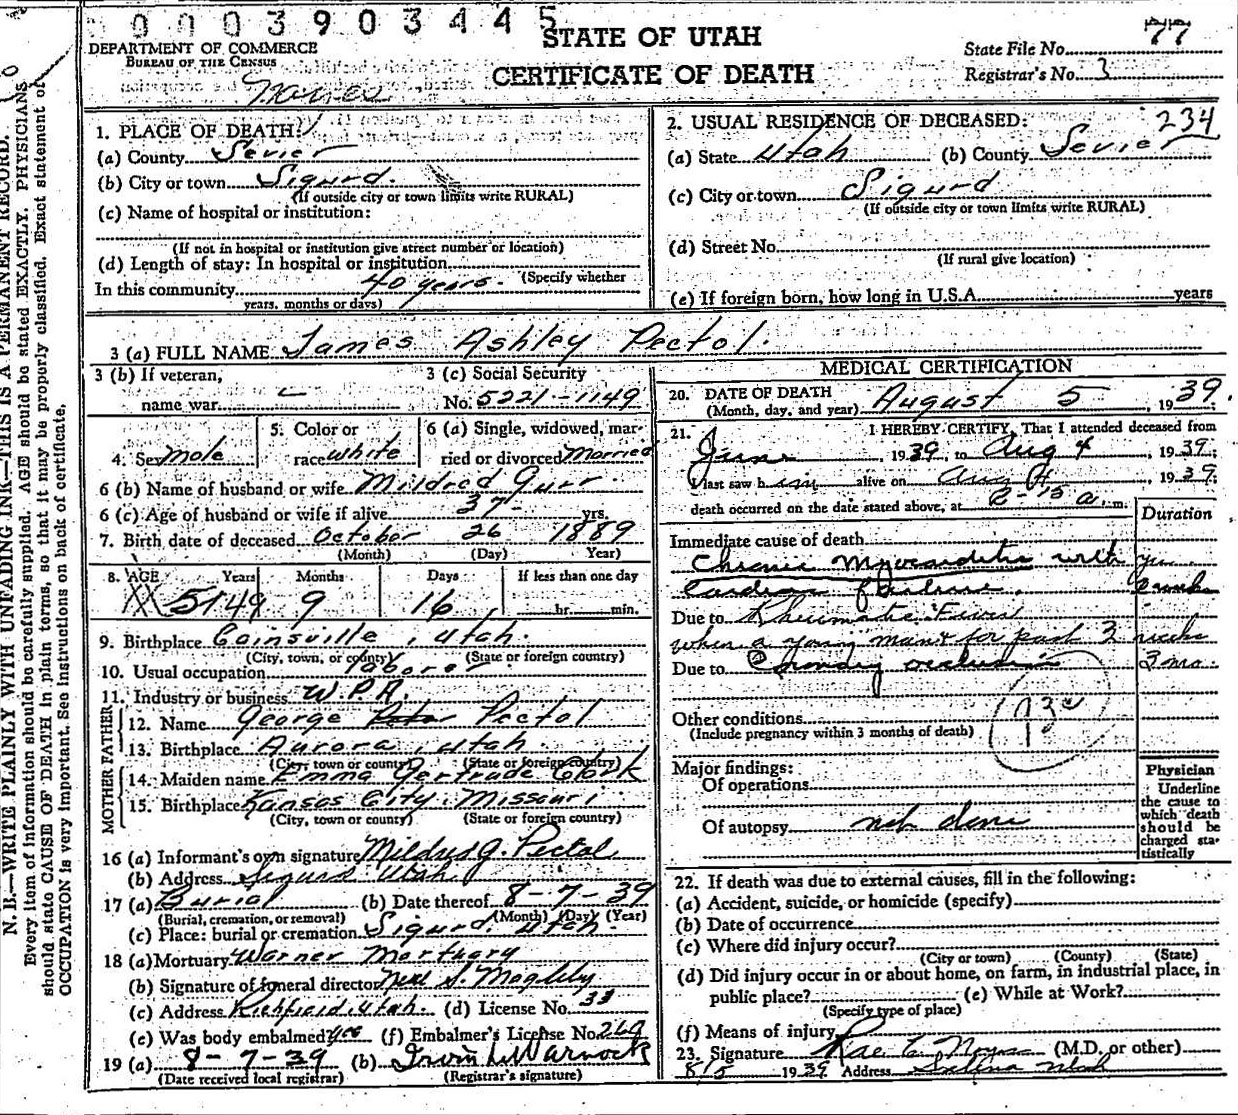 0003903445
STATE OF UTAH
CERTIFICATE OF DEATH
DEPARTMENT OF COMMERCE
BUREAU OF THE CENSUS
State File No. 77
Registrar's No. 3
N. B.—WRITE PLAINLY WITH UNFADING INK—THIS IS A PERMANENT RECORD.
Every item of information should be carefully supplied. AGE should be stated EXACTLY. PHYSICIANS
should state CAUSE OF DEATH in plain terms, so that it may be properly classified. Exact statement of
OCCUPATION is very important. See instructions on back of certificate.
1. PLACE OF DEATH:
(a) County Sevier
(b) City or town Sigurd.
(If outside city or town limits write RURAL)
(c) Name of hospital or institution:
(If not in hospital or institution give street number or location)
(d) Length of stay: In hospital or institution
(Specify whether
In this community 40 years.
years, months or days)
2. USUAL RESIDENCE OF DECEASED: 234
(a) State Utah (b) County Sevier
(c) City or town Sigurd
(If outside city or town limits write RURAL)
(d) Street No.
(If rural give location)
(e) If foreign born, how long in U.S.A. years
3 (a) FULL NAME James Ashley Pectol.
3 (b) If veteran, 3 (c) Social Security
name war No. 5221-1149
4. Sex male 5. Color or race white 6 (a) Single, widowed, married or divorced Married
6 (b) Name of husband or wife Mildred Gurr.
6 (c) Age of husband or wife if alive 37- yrs.
7. Birth date of deceased October 26 1889
(Month) (Day) Year)
8. AGE Years Months Days If less than one day
51 49 9 16 hr. min.
9. Birthplace Cainsville, Utah.
(City, town, or county) (State or foreign country)
10. Usual occupation labore
11. Industry or business W.P.A.
FATHER
12. Name George Peter Pectol
13. Birthplace Aurora, Utah.
(City, town or county) (State or foreign country)
MOTHER
14. Maiden name Emma Gertrude Clark
15. Birthplace Kansas City, Missouri
(City, town or county) (State or foreign country)
16 (a) Informant's own signature G. Pectol
(b) Address Sigurd Utah
17 (a) Burial (b) Date thereof 8-7-39
(Burial, cremation, or removal) (Month) (Day) (Year)
(c) Place: burial or cremation Sigurd, Utah.
18 (a) Mortuary Warner Mortuary
(b) Signature of funeral director S. Magleby
(c) Address Richfield, Utah. (d) License No. 33
(e) Was body embalmed? yes (f) Embalmer's License No. 269
19 (a) 8-7-39 (b) Irvin L. Warnock
(Date received local registrar) (Registrar's signature)
MEDICAL CERTIFICATION
20. DATE OF DEATH August 5, 1939.
(Month, day, and year)
21. I HEREBY CERTIFY, That I attended deceased from
June, 1939, to Aug 4, 1939;
I last saw him alive on Aug 4, 1939;
death occurred on the date stated above, at 2-15 a. m.
Duration
Immediate cause of death
Chronic Myocarditis with
Cardiac failure.
Due to Rheumatic Fever
when a young man & for past 3 weeks
Due to Coronary occlusion 3 mo.
Other conditions
(Include pregnancy within 3 months of death)
Major findings:
Of operations
Of autopsy not done
Physician
Underline
the cause to
which death
should be
charged sta-
tistically
22. If death was due to external causes, fill in the following:
(a) Accident, suicide, or homicide (specify)
(b) Date of occurrence
(c) Where did injury occur?
(City or town) (County) (State)
(d) Did injury occur in or about home, on farm, in industrial place, in
public place? (e) While at Work?
(Specify type of place)
(f) Means of injury
23. Signature Rae E. Noyes (M.D. or other)
8/5 1939 Address Salina Utah